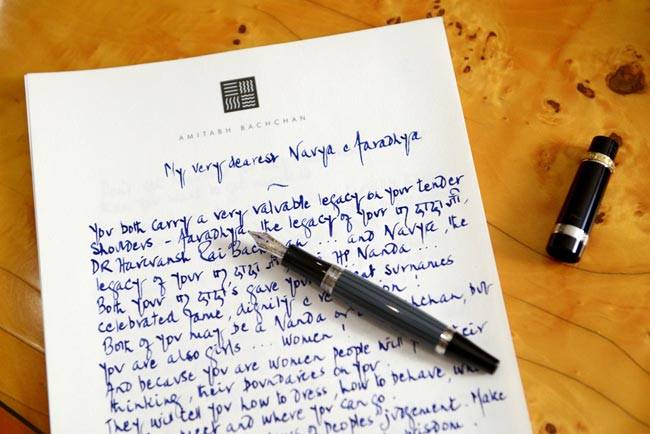 AMITABH BACHCHAN
My very dearest Navya & Aaradhya
You both carry a very valuable legacy on your tender
shoulders - Aaradhya, the legacy of your दादा जी,
DR Harivansh Rai ... and Navya, the
legacy of your ... HP Nanda ...
Both your ... 's gave your surnames
celebrated fame, dignity &
Both of you may be a Nanda or but
you are also girls ... Women !
And because you are women people will their
thinking, their boundaries on you.
They will tell you how to dress, how to behave,
and where you can go.
of people's judgement. Make
wisdom.